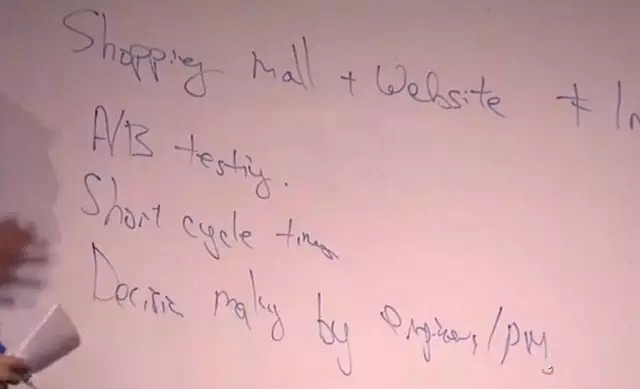 Shopping mall + Website ≠ In
A/B testing.
Short cycle times
Decision making by engineers/PM